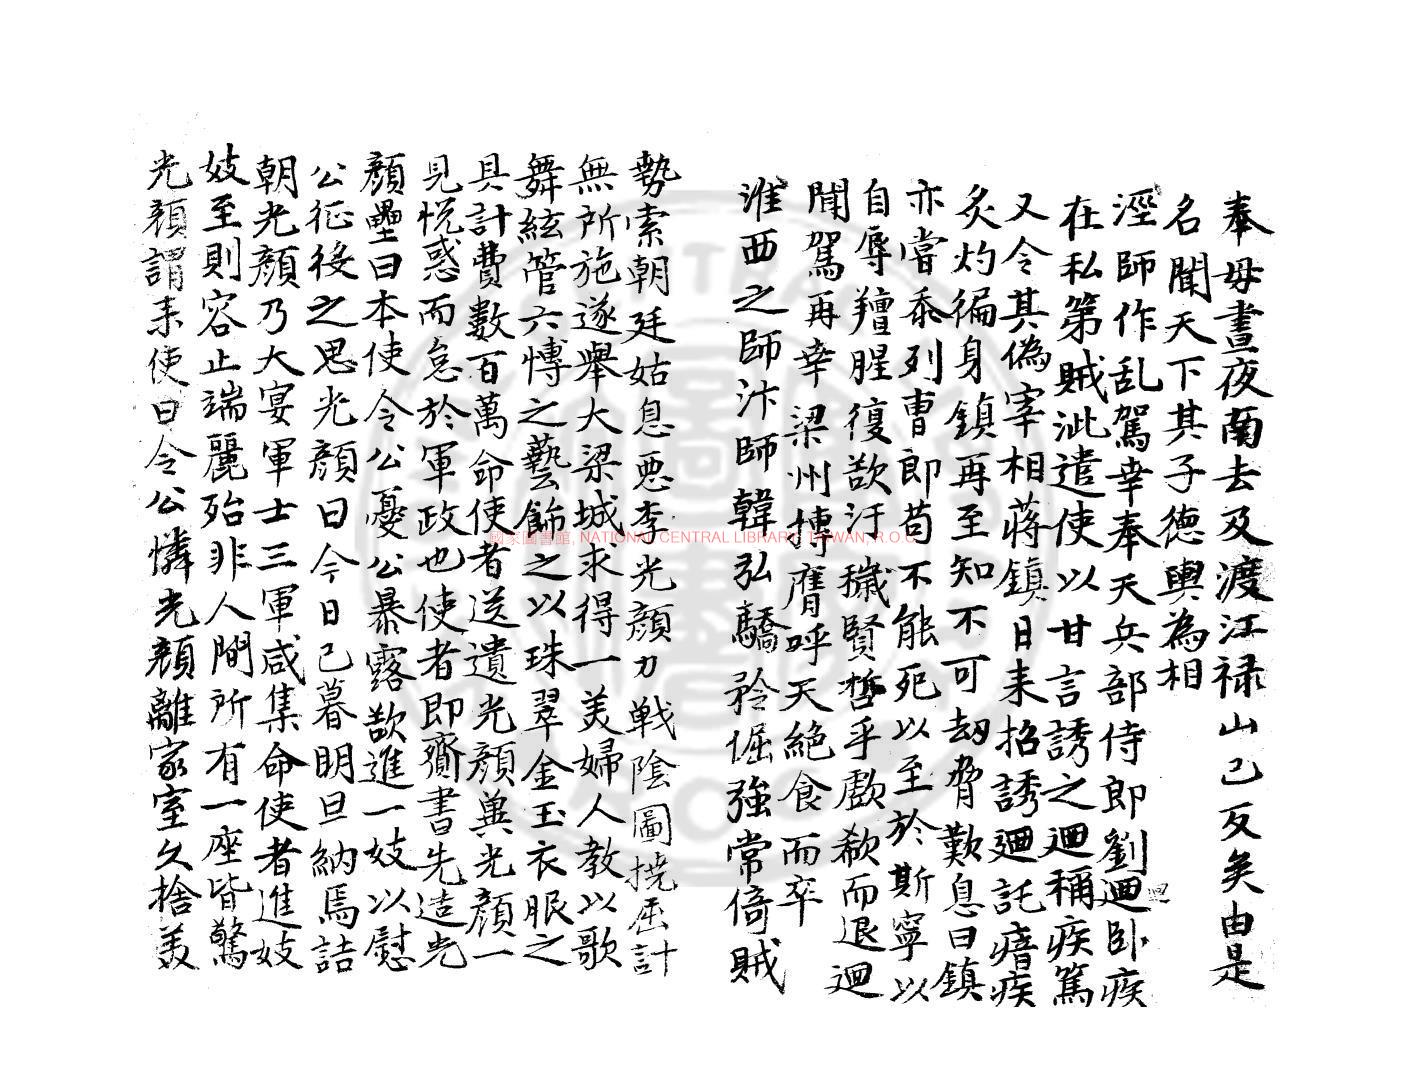 奉母晝夜南去及渡江禄山已反矣由是
名聞天下其子德輿為相
涇師作乱駕幸奉天兵部侍郎劉迺卧疾
迴
在私第賊泚遣使以甘言誘之迺稱疾篤
又令其偽宰相蔣鎮日来招誘迺託瘖疾
炙灼徧身鎮再至知不可刼脅歎息曰鎮
亦嘗忝列曹郎苟不能死以至於斯寧以
自辱羶腥復欲汙穢賢哲乎歔欷而退迺
聞駕再幸梁州搏膺呼天絶食而卒
淮西之師汴師韓弘驕矜倔強常倚賊
勢索朝廷姑息惡李光顔力戰陰圖撓屈計
無所施遂舉大梁城求得一美婦人教以歌
舞絃管六愽之藝飾之以珠翠金玉衣服之
具計費數百萬命使者送遺光顔兾光顔一
見悦惑而怠於軍政也使者即齎書先造光
顔壘曰本使令公憂公暴露欲進一妓以慰
公征後之思光顔曰今日已暮明旦納焉詰
朝光顔乃大宴軍士三軍咸集命使者進妓
妓至則容止端麗殆非人間所有一座皆驚
光顔謂来使曰令公憐光顔離家室久捨美
國家圖書館, NATIONAL CENTRAL LIBRARY, TAIWAN, R.O.C